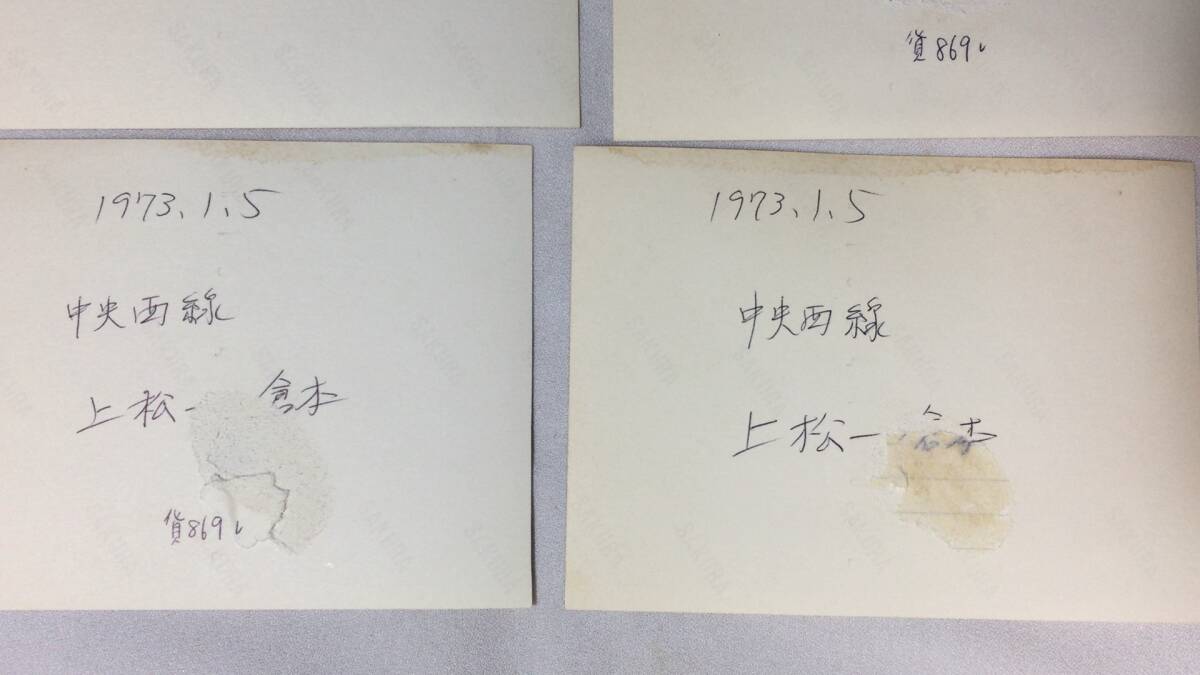 貨869レ
1973.1.5
中央西線
上松ー倉本
貨869レ
1973.1.5
中央西線
上松ー倉本